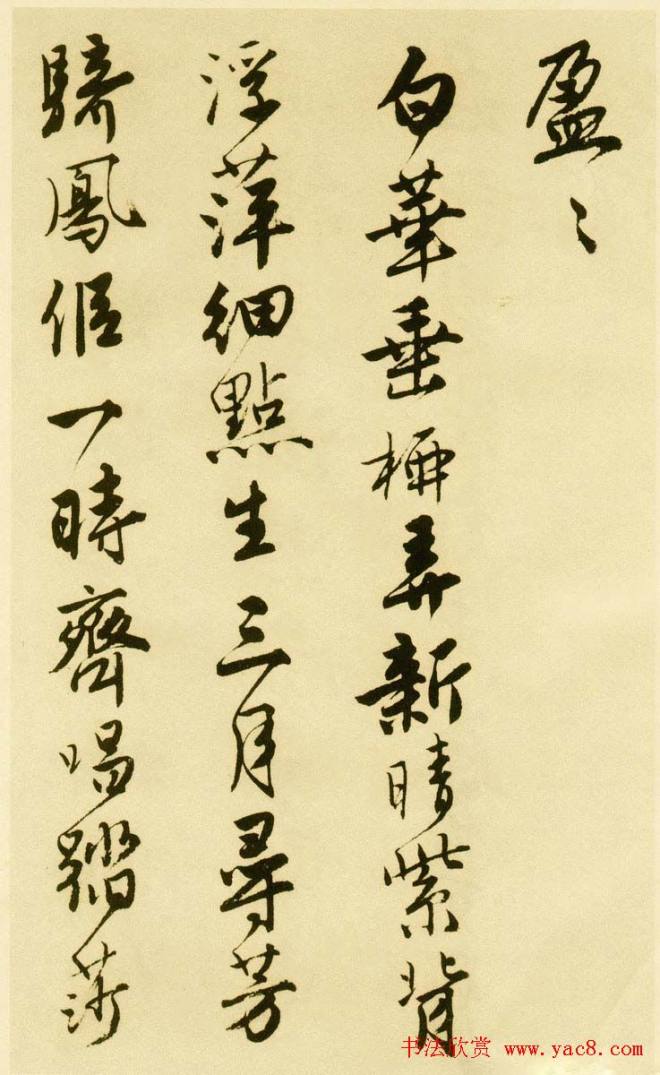 盈〻
白華垂柳弄新晴紫背
浮萍細點生三月尋芳
騎鳳侣一時齊唱踏莎
书法欣赏 www.yac8.com